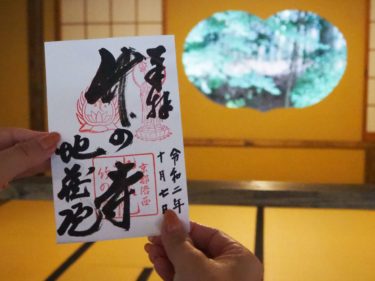 奉拝
竹の寺
地蔵院
令和二年
十月七日
京都洛西
竹の